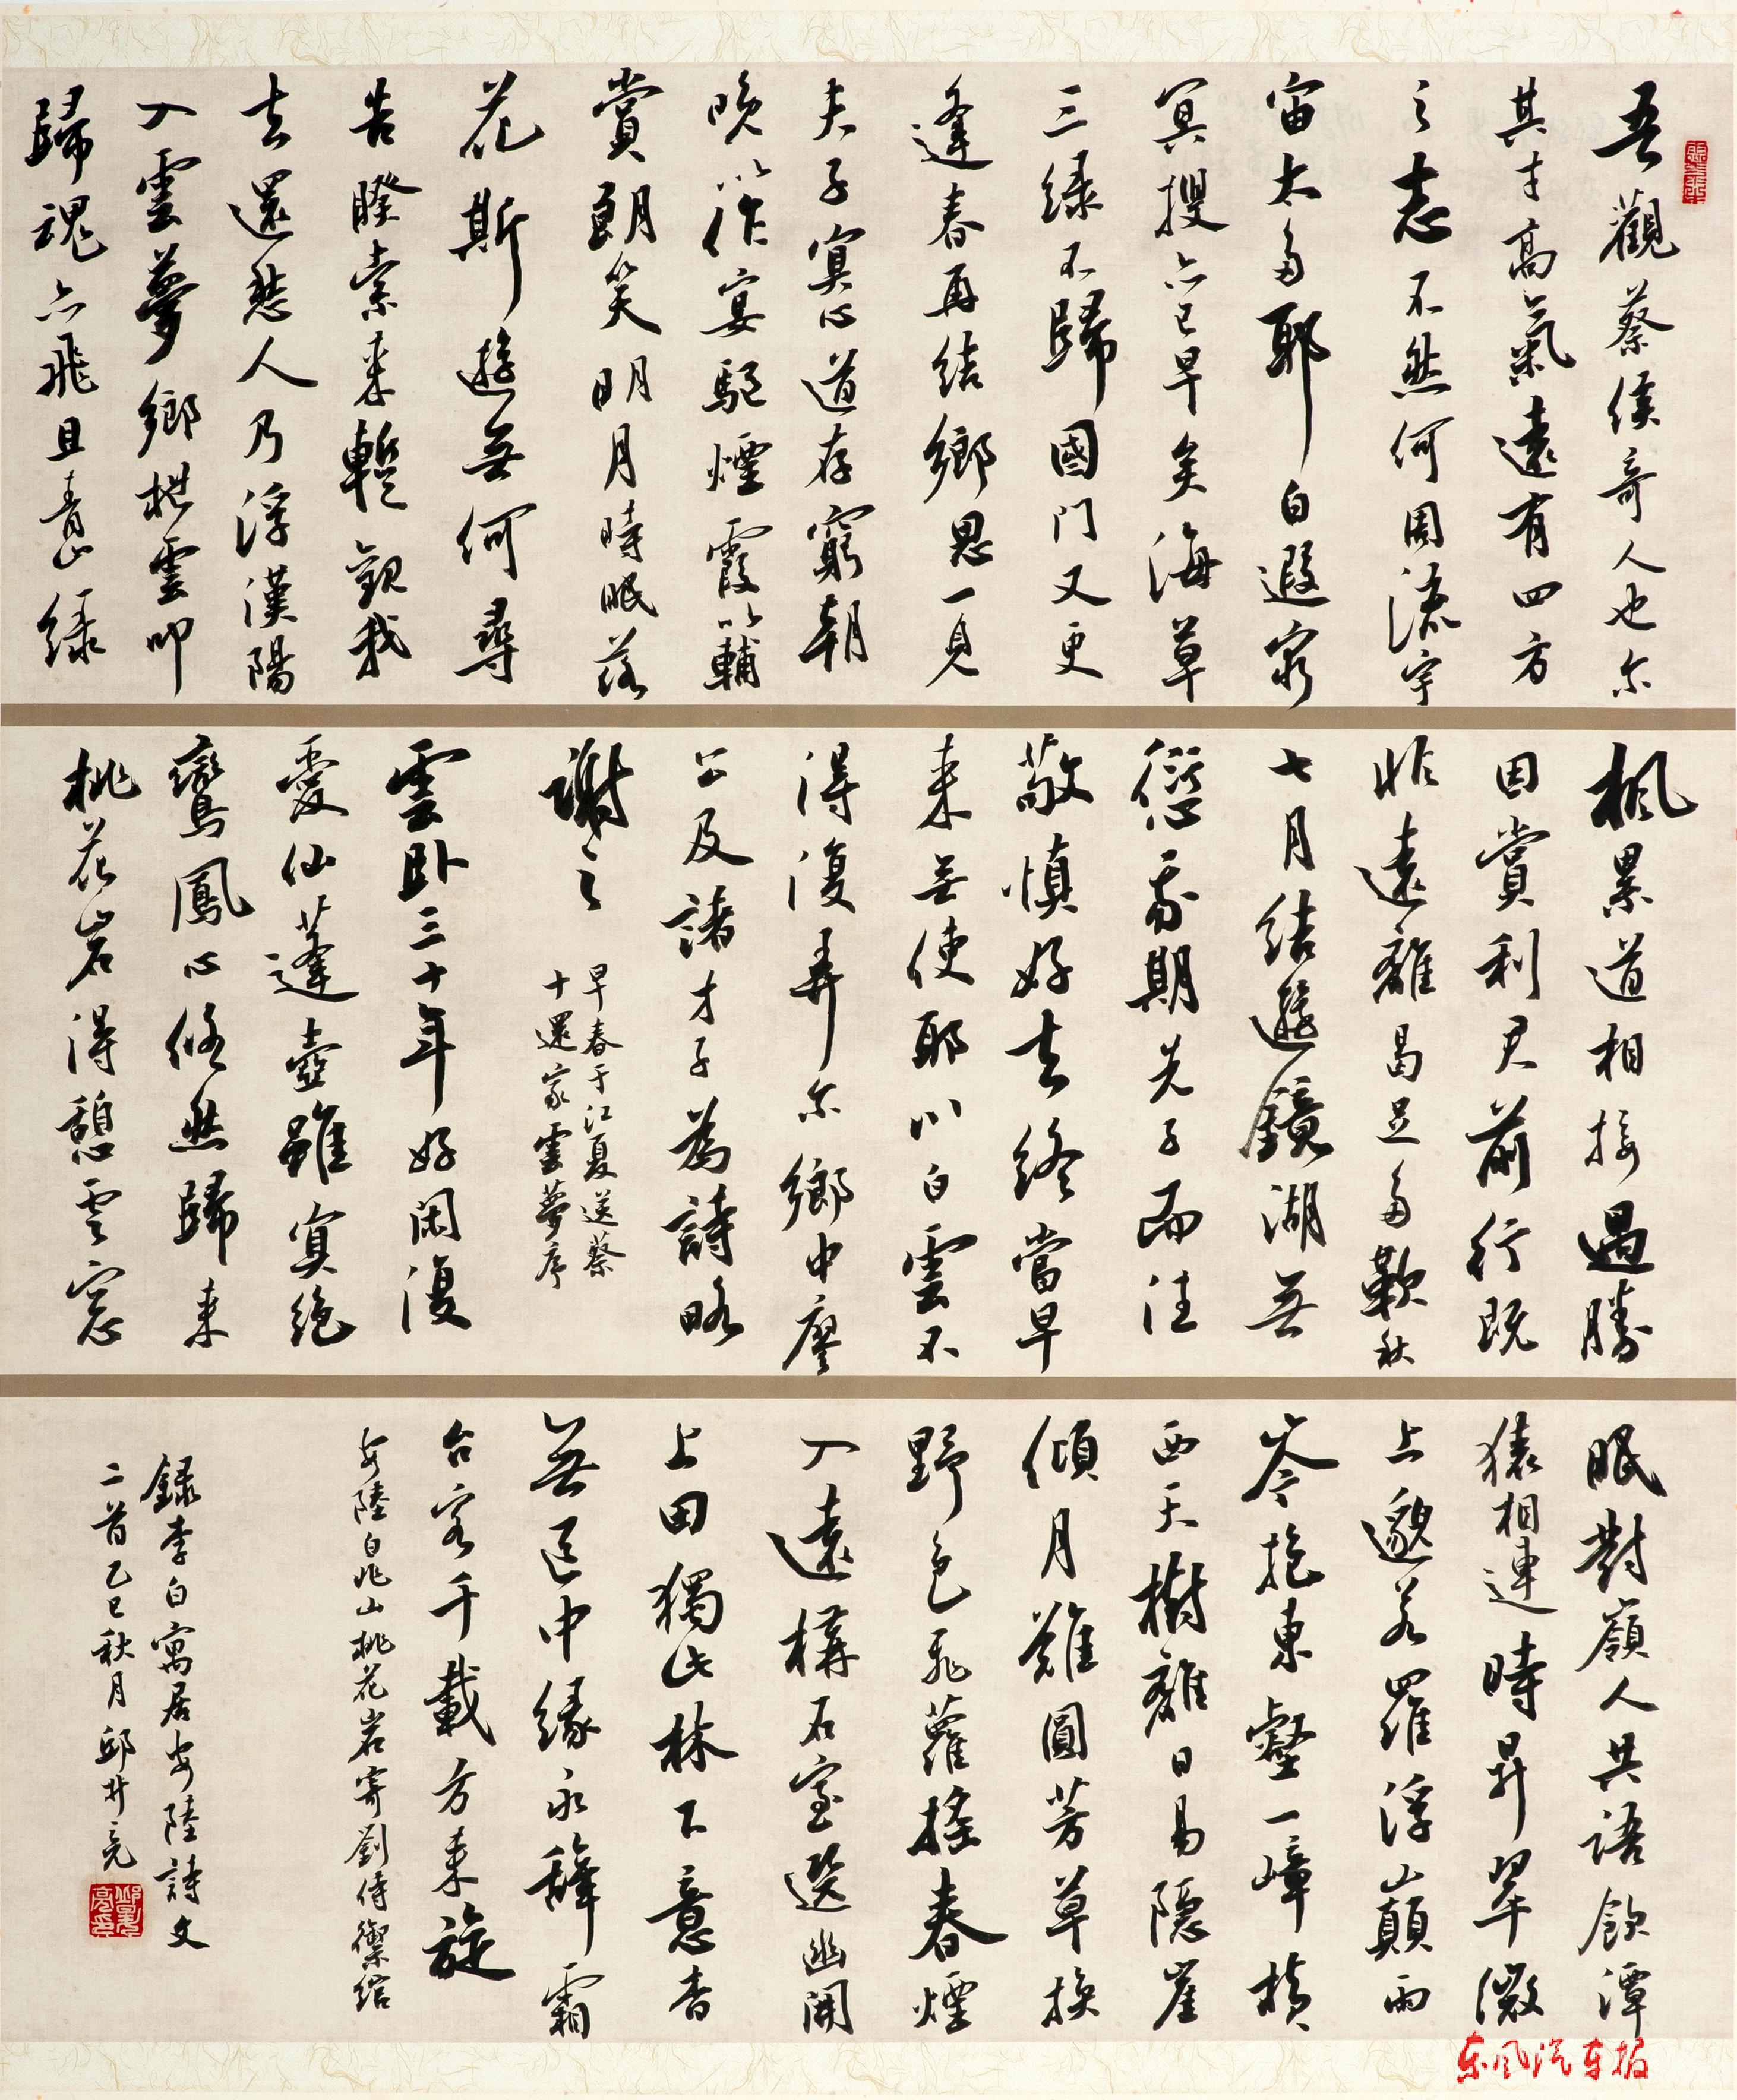 吾觀蔡侯奇人也尔
其才高氣遠有四方
之志不然何周流宇
宙太多耶白遐窮
冥搜亦已早矣海草
三綠不歸國門又更
逢春再結鄉思一見
夫子冥心道存窮朝
晚以作宴驅煙霞以輔
賞朗笑明月時眠落
花斯遊無何尋
告睽索来暫觀我
去還愁人乃浮漢陽
入雲夢鄉枻雲叩
歸魂亦飛且青山綠
楓累道相接遇勝
因賞利君前行既
非遠離曷足多歎秋
七月結遊鏡湖無
愆我期先子而往
敬慎好去終當早
来無使耶川白雲不
得復弄尔鄉中廖
公及諸才子為詩略
謝之
早春于江夏送蔡
十還家雲夢序
雲卧三十年好闲復
愛仙蓬壺雖冥絶
鸞鳳心悠然歸来
桃花岩得憩雲窓
眠對嶺人共語飲潭
猿相連時昇翠微
上邈若羅浮山巔兩
岑抱東壑一嶂横
西天樹雜日易隱崖
傾月難圓芳草换
野色飛蘿摇春煙
入遠構石室選幽開
上田獨此林下意杳
無區中緣永辭霜
台客千載方来旋
安陸白兆山桃花岩寄劉侍御綰
録李白寓居安陸詩文
二首乙巳秋月邱井亮
东风汽车报